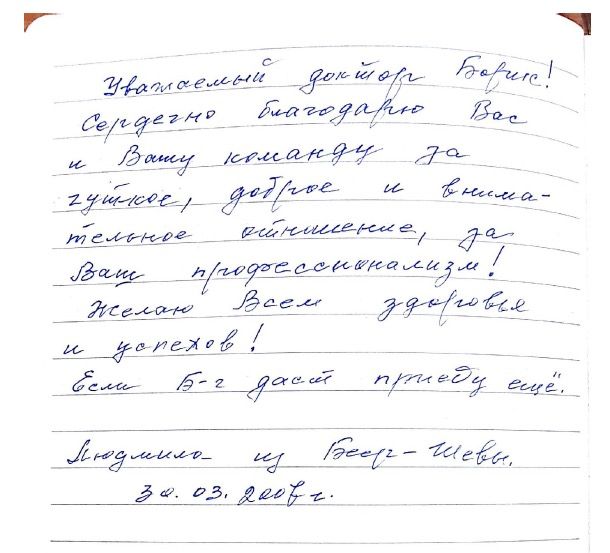 Уважаемый доктор Борис!
Сердечно благодарю Вас
и Вашу команду за
чуткое, доброе и внима-
тельное отншение, за
Ваш профессионализм!
Желаю Всем здоровья
и успехов!
Если Б-г даст приеду ещё.
Людмила из Беер-Шевы.
30.03.2008 г.